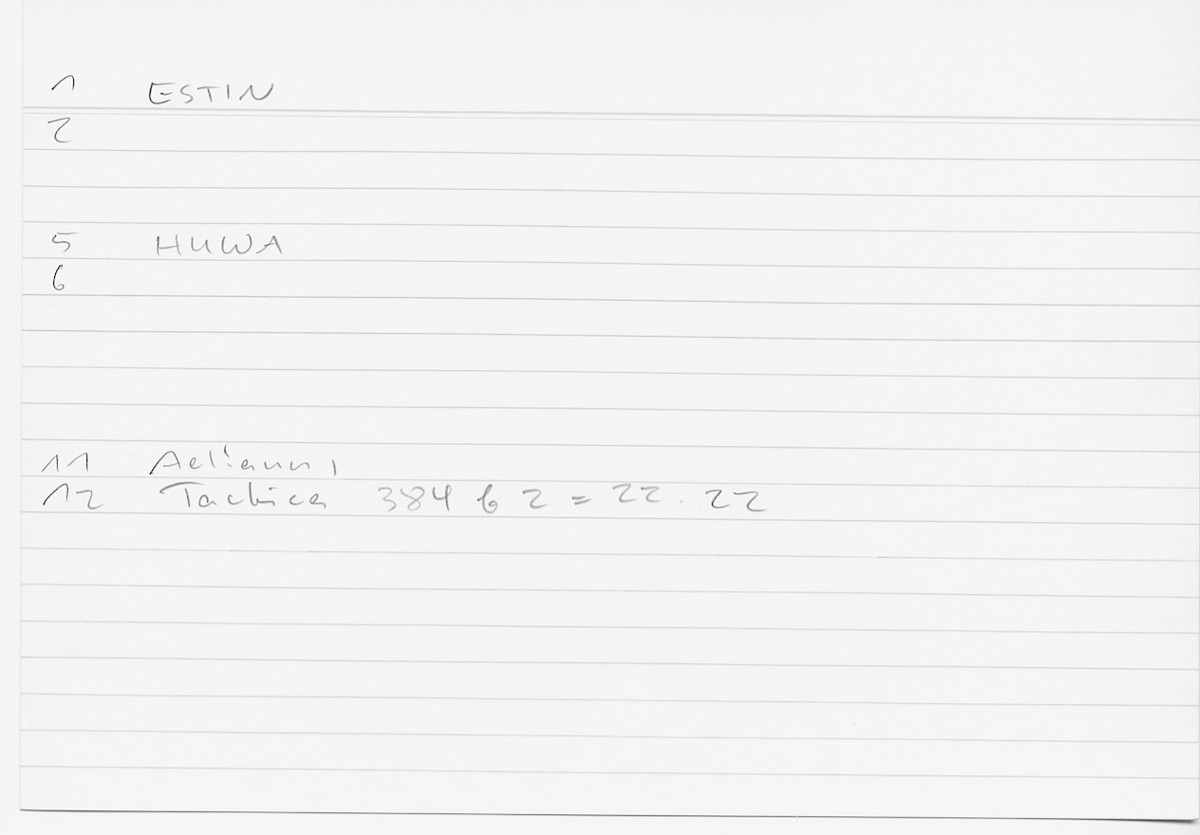 1 ESTIN
2
5 HUWA
6
11 Aelianus
12 Tactica 384 b 2 = 22.22